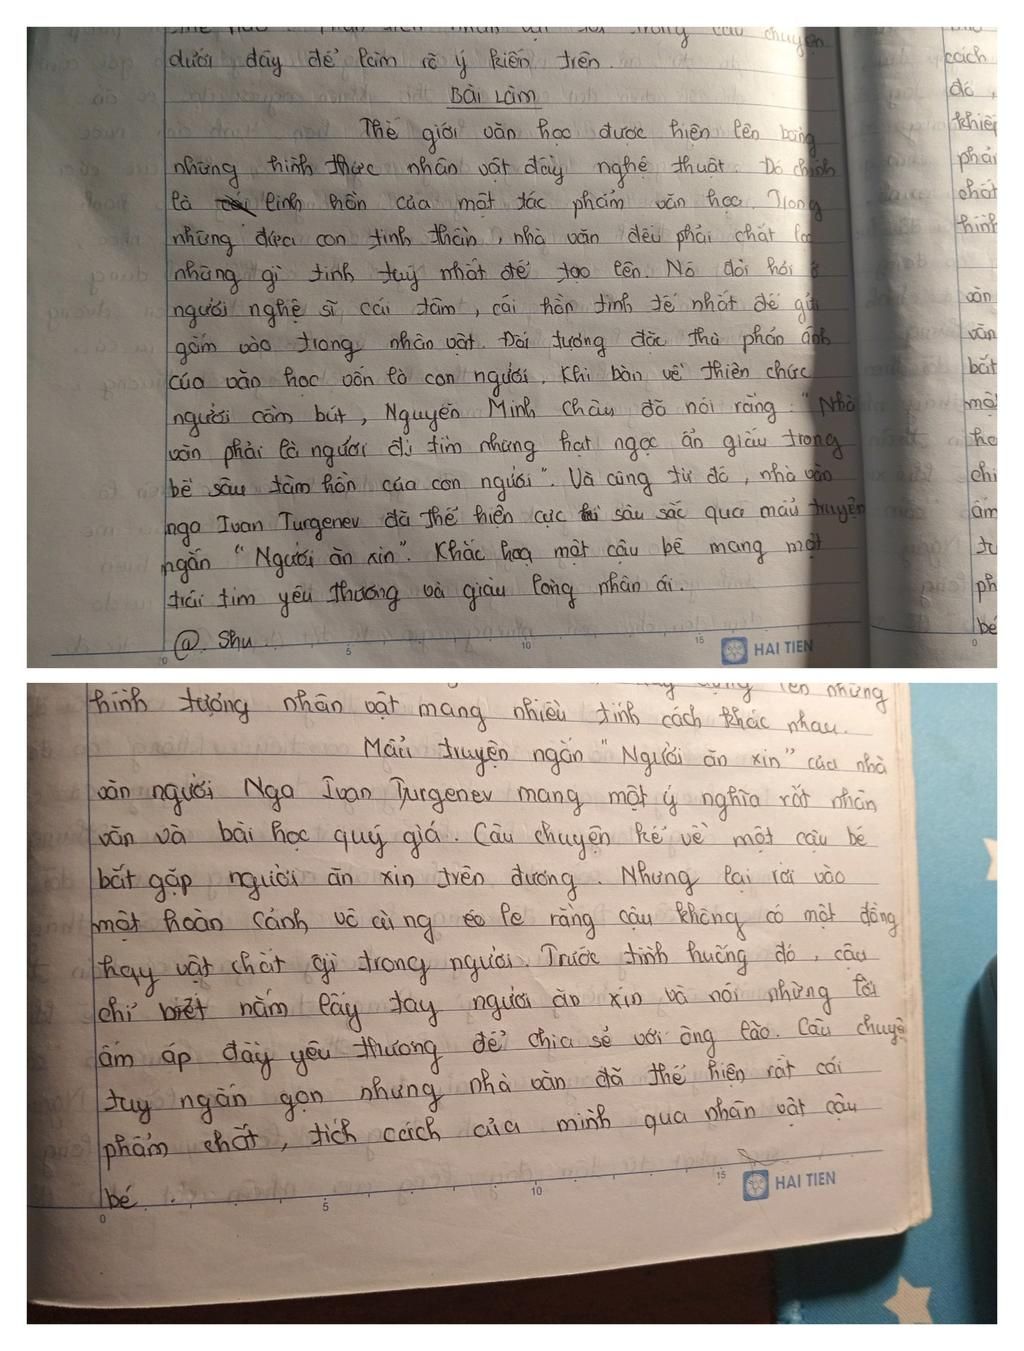 trong câu chuyện
dưới đây để làm rõ ý kiến trên.
Bài Làm
Thế giới văn học được hiện lên bằng
những hình thức nhân vật đầy nghệ thuật. Đó chính
là linh hồn của một tác phẩm văn học. Trong
những đứa con tinh thần, nhà văn đều phải chắt lọ
những gì tinh tuý nhất để tạo lên. Nó đòi hỏi ở
người nghệ sĩ cái tâm, cái hồn tinh tế nhất để gửi
gắm vào trong nhân vật. Đối tượng đặc thù phản ánh
của văn học vốn là con người. Khi bàn về thiên chức
người cầm bút, Nguyễn Minh Châu đã nói rằng: "Nhà
văn phải là người đi tìm những hạt ngọc ẩn giấu trong
bề sâu tâm hồn của con người". Và cũng từ đó, nhà văn
nga Ivan Turgenev đã thể hiện cực sâu sắc qua mẩu truyện
ngắn "Người ăn xin". Khắc hoạ một cậu bé mang một
trái tim yêu thương và giàu lòng nhân ái.
@. Shu
0 5 10 15 HAI TIEN
cách
đó,
khiếp
phải
chất
hình
văn
văn
bất
một
ho
chi
ấm
tu
ph
bé
0
lên những
hình tượng nhân vật mang nhiều tính cách khác nhau.
Mẩu truyện ngắn "Người ăn xin" của nhà
văn người Nga Ivan Turgenev mang một ý nghĩa rất nhân
văn và bài học quý giá. Câu chuyện kể về một cậu bé
bắt gặp người ăn xin trên đường. Nhưng lại rơi vào
một hoàn cảnh vô cùng éo le rằng cậu không có một đồng
hay vật chất gì trong người. Trước tình huống đó, cậu
chỉ biết nắm lấy tay người ăn xin và nói những lời
ấm áp đầy yêu thương để chia sẻ với ông lão. Câu chuyệ
tuy ngắn gọn nhưng nhà văn đã thể hiện rất cái
phẩm chất, tích cách của mình qua nhân vật cậu
bé.
0 5 10 15 HAI TIEN